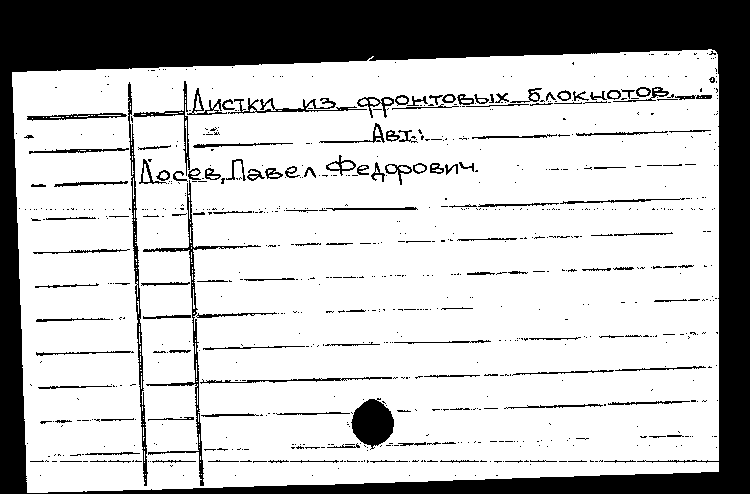 Листки из фронтовых блокнотов.
Авт.:
Лосев, Павел Федорович.